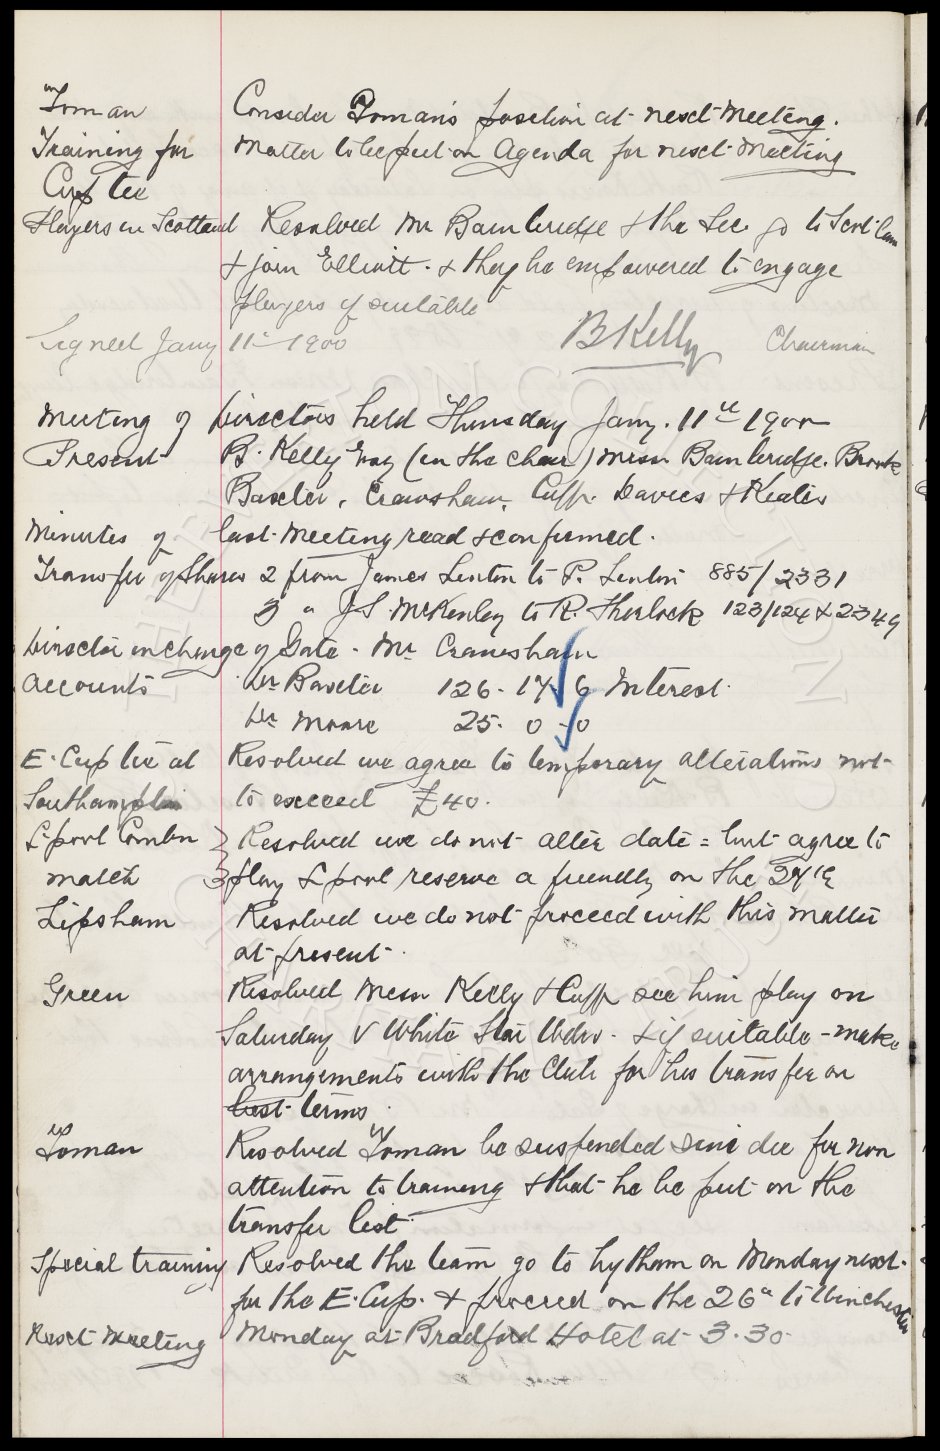 Toman Consider Toman's position at next Meeting.
Training for Matter to be put on Agenda for next Meeting
Cup tee
Players in Scotland Resolved Mr Bainbridge & the Sec. go to
& join Elliott. & they be empowered to engage
players if suitable
Signed Jany 11th 1900 B Kelly Chairman
Meeting of Directors held Thursday Jany. 11th 1900
Present B. Kelly Esq (in the chair) Messrs Bainbridge. Brooke
Baxter, Crawshaw, Cuff. Davies & Keates
Minutes of last meeting read & confirmed.
Transfer of Shares 2 from James Linton to P. Linton 885/2331
3 " J S. McKenley to R. Thurlock 123/124 & 2349
Director in charge of Gate - Mr Crawshaw
Accounts Dr Baxter 126. 17 6 Interest.
Dr Moore 25. 0 - 0
E. Cup tie at Resolved we agree to temporary alterations not
Southampton to exceed £40.
L'pool Combn } Resolved we do not alter date = but agree to
match } play L'pool reserve a friendly on the 27th
Lipsham Resolved we do not proceed with this matter
at present.
Green Resolved Messrs Kelly & Cuff see him play on
Saturday V White Star Wdrs. & if suitable - make
arrangements with the Club for his transfer on
best terms.
Toman Resolved Toman be suspended sine die for non
attention to training & that he be put on the
transfer list
Special training Resolved the team go to Lytham on Monday next.
for the E. Cup. & proceed on the 26th to Winchester
Next Meeting Monday at Bradford Hotel at 3.30